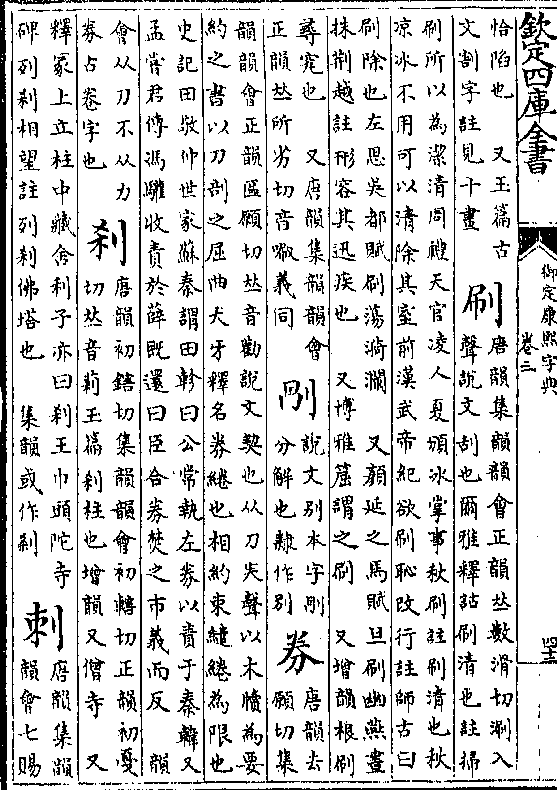 欽定四庫全書
御定康熙字典
卷三
四十三
怡陷也　又玉篇古
文割字註見十畫
刷
唐韻集韻韻會正韻𠀤數滑切涮入
聲說文刮也爾雅釋詁刷清也註掃
刷所以為潔清周禮天官凌人夏頒冰掌事秋刷註刷清也秋
凉冰不用可以清除其室前漢武帝紀欲刷恥改行註師古曰
刷除也左思吳都賦刷蕩漪瀾　又顏延之馬賦旦刷幽燕晝
秣荆越註形容其迅疾也　又博雅謂之刷　又增韻根刷
尋究也　又唐韻集韻韻會
正韻𠀤所劣切音唰義同
說文别本字剮
分解也隸作别
券
唐韻去
願切集
韻韻會正韻區願切𠀤音勸說文契也从刀聲以木牘為要
約之書以刀剖之屈曲犬牙釋名券綣也相約束繾綣為限也
史記田敬仲世家蘇秦謂田軫曰公常執左券以責于秦韓又
孟嘗君傳馮驩收責於薛既還曰臣合券焚之市義而反　韻
會从刀不从力
券占卷字也
刹
唐韻初鎋切集韻韻會初轄切正韻初戛
切𠀤音玉篇刹柱也增韻又僧寺　又
釋冢上立柱中藏舍利子亦曰刹王巾頭陀寺
碑列刹相望註列刹佛塔也　集韻或作剎
刺
唐韻集韻
韻會七賜